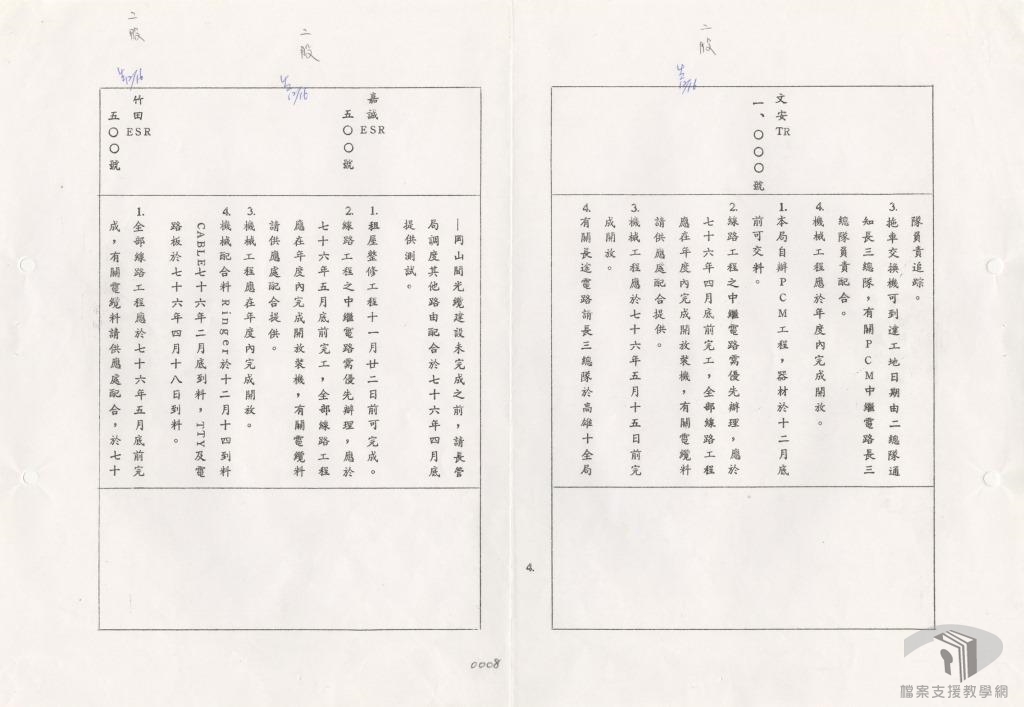 二股
12/16
文安TR
一、〇〇〇號
隊員責追踪。
3.拖車交換機可到達工地日期由二總隊通
知長三總隊，有關PCM中繼電路長三
總隊負責配合。
4.機械工程應於年度內完成開放。
1.本局自辦PCM工程，器材於十二月底
前可交料。
2.線路工程之中繼電路需優先辦理，應於
七十六年四月底前完工，全部線路工程
應在年度內完成開放裝機，有關電纜料
請供應處配合提供。
3.機械工程應於七十六年五月十五日前完
成開放。
4.有關長途電路請長三總隊於高雄十全局
4.
二股
12/16
嘉誠ESR
五〇〇號
—岡山間光纜建設未完成之前，請長管
局調度其他路由配合於七十六年四月底
提供測試。
1.租屋整修工程十一月廿二日前可完成。
2.線路工程之中繼電路需優先辦理，應於
七十六年五月底前完工，全部線路工程
應在年度內完成開放裝機，有關電纜料
請供應處配合提供。
3.機械工程應在年度內完成開放。
4.機械配合料Ringer於十二月十四到料
CABLE七十六年二月底到料，TTY及電
路板於七十六年四月十八日到料。
二股
12/16
竹田ESR
五〇〇號
1.全部線路工程應於七十六年五月底前完
成，有關電纜料請供應處配合，於七十
0008
檔案支援教學網